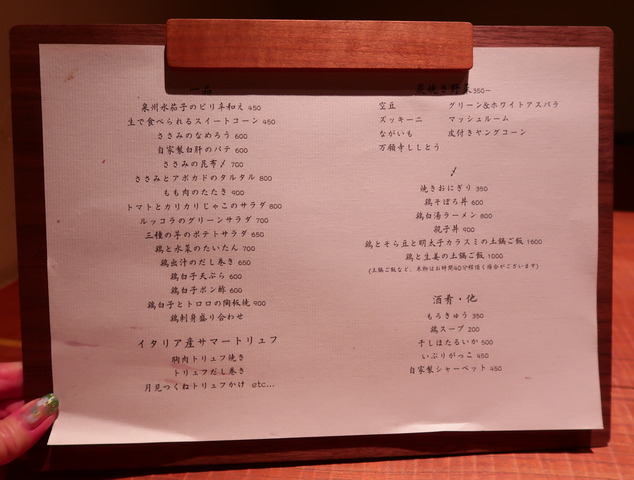 一品
泉州水茄子のピリ辛和え 450
生で食べられるスイートコーン 450
ささみのなめろう 600
自家製白肝のパテ 600
ささみの昆布〆 700
ささみとアボカドのタルタル 800
もも肉のたたき 900
トマトとカリカリじゃこのサラダ 800
ルッコラのグリーンサラダ 700
三種の芋のポテトサラダ 650
鶏と水菜のたいたん 700
鶏出汁のだし巻き 650
鶏白子天ぷら 600
鶏白子ポン酢 600
鶏白子とトロロの陶板焼 900
鶏刺身盛り合わせ
イタリア産サマートリュフ
胸肉トリュフ焼き
トリュフだし巻き
月見つくねトリュフかけ etc...
炭焼き野菜 350~
空豆 グリーン&ホワイトアスパラ
ズッキーニ マッシュルーム
ながいも 皮付きヤングコーン
万願寺ししとう
〆
焼きおにぎり 350
鶏そぼろ丼 600
鶏白湯ラーメン 800
親子丼 900
鶏とそら豆と明太子カラスミの土鍋ご飯 1600
鶏と生姜の土鍋ご飯 1000
(土鍋ご飯など、米物はお時間40分程頂く場合がございます)
酒肴・他
もろきゅう 350
鶏スープ 200
干しほたるいか 500
いぶりがっこ 450
自家製シャーベット 450